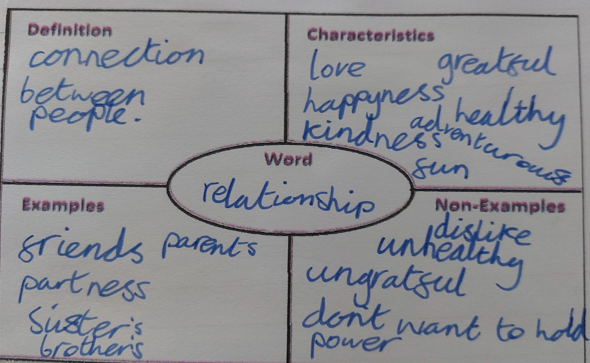 Definition
connection
between
people.
Characteristics
love greatful
happyness healthy
kindness adventurous
fun
Word
relationship
Examples
friends parents
partness
Sister's
brother's
Non-Examples
dislike
unhealthy
ungratful
dont want to hold
power